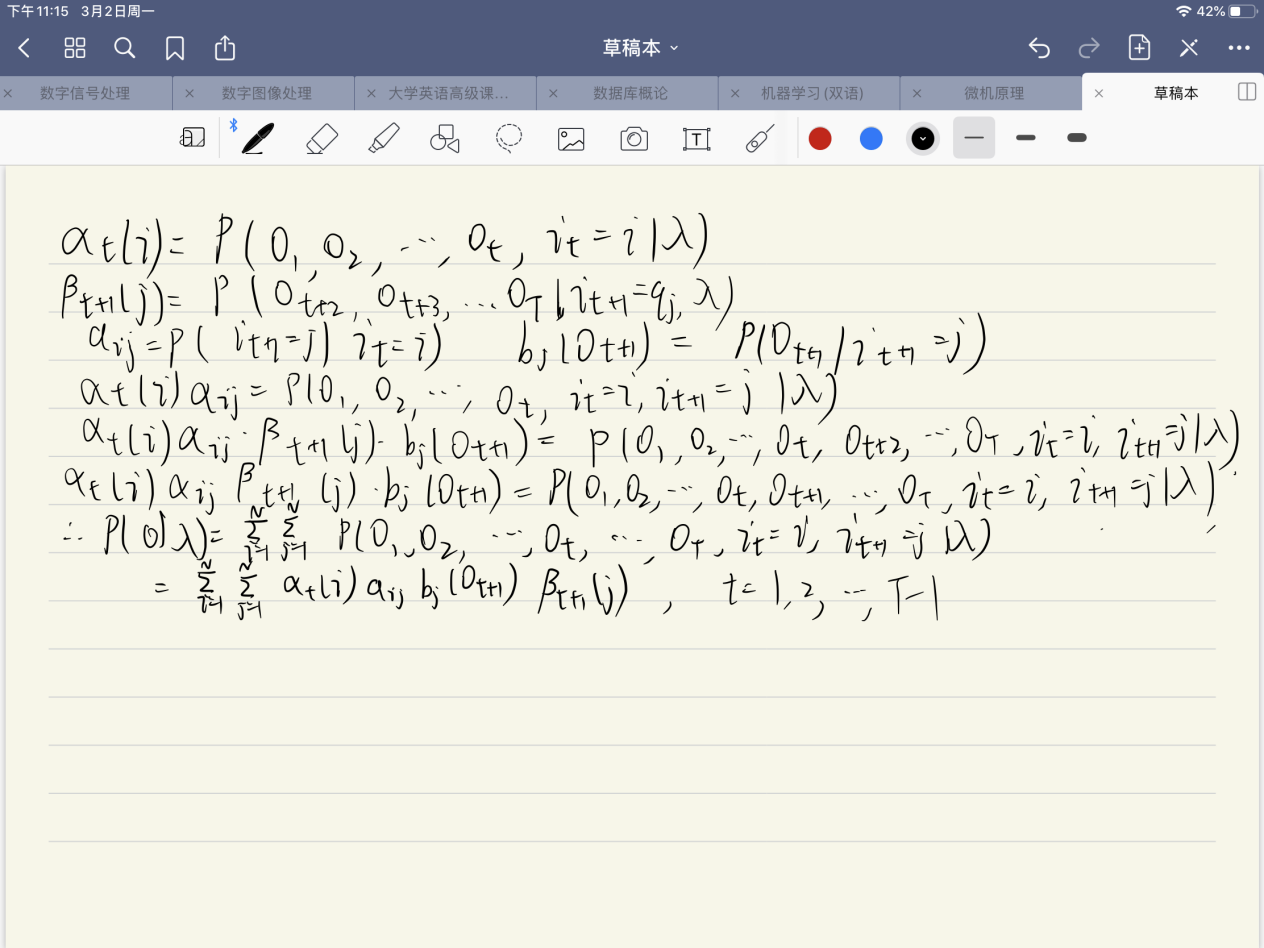 下午11:15 3月2日周一
42%
草稿本
数字信号处理 数字图像处理 大学英语高级课... 数据库概论 机器学习(双语) 微机原理 草稿本
α_t(i)= P(O_1, O_2, ..., O_t, i_t=i|λ)
β_{t+1}(j)= P(O_{t+2}, O_{t+3}, ... O_T | i_{t+1}=q_j, λ)
a_{ij}=P(i_{t+1}=j| i_t=i) b_j(O_{t+1}) = P(O_{t+1}|i_{t+1}=j)
α_t(i) a_{ij} = P(O_1, O_2, ..., O_t, i_t=i, i_{t+1}=j |λ)
α_t(i) a_{ij} · β_{t+1}(j) · b_j(O_{t+1}) = P(O_1, O_2, ..., O_t, O_{t+2}, ..., O_T, i_t=i, i_{t+1}=j|λ)
α_t(i) a_{ij} β_{t+1}(j) · b_j(O_{t+1}) = P(O_1, O_2, ..., O_t, O_{t+1}, ..., O_T, i_t=i, i_{t+1}=j|λ)
∴ P(O|λ)= Σ_{i=1}^N Σ_{j=1}^N P(O_1, O_2, ..., O_t, ..., O_T, i_t=i, i_{t+1}=j|λ)
= Σ_{i=1}^N Σ_{j=1}^N α_t(i) a_{ij} b_j(O_{t+1}) β_{t+1}(j), t=1,2,...,T-1